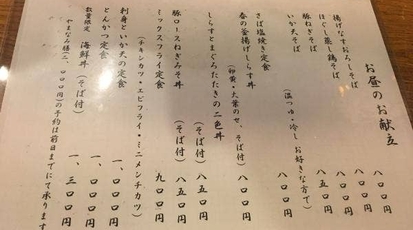 お昼のお献立
揚げなすおろしそば 八〇〇円
ほぐし蒸し鶏そば 八〇〇円
豚ねぎそば 八五〇円
いか天そば 八〇〇円
(温つゆ・冷し お好きな方で)
さば塩焼き定食 八〇〇円
春の釜揚げしらす丼
(卵黄・大葉のせ、そば付) 八〇〇円
しらすとまぐろたたきの二色丼
(そば付) 八五〇円
豚ロースねぎみそ丼 (そば付) 八五〇円
ミックスフライ定食 九〇〇円
(チキンカツ・エビフライ・ミニメンチカツ)
刺身といか天の定食 一、〇〇〇円
とんかつ定食 一、〇〇〇円
数量限定 海鮮丼(そば付) 一、三〇〇円
やまなみ膳(二、〇〇〇円)の予約は前日までにて承ります